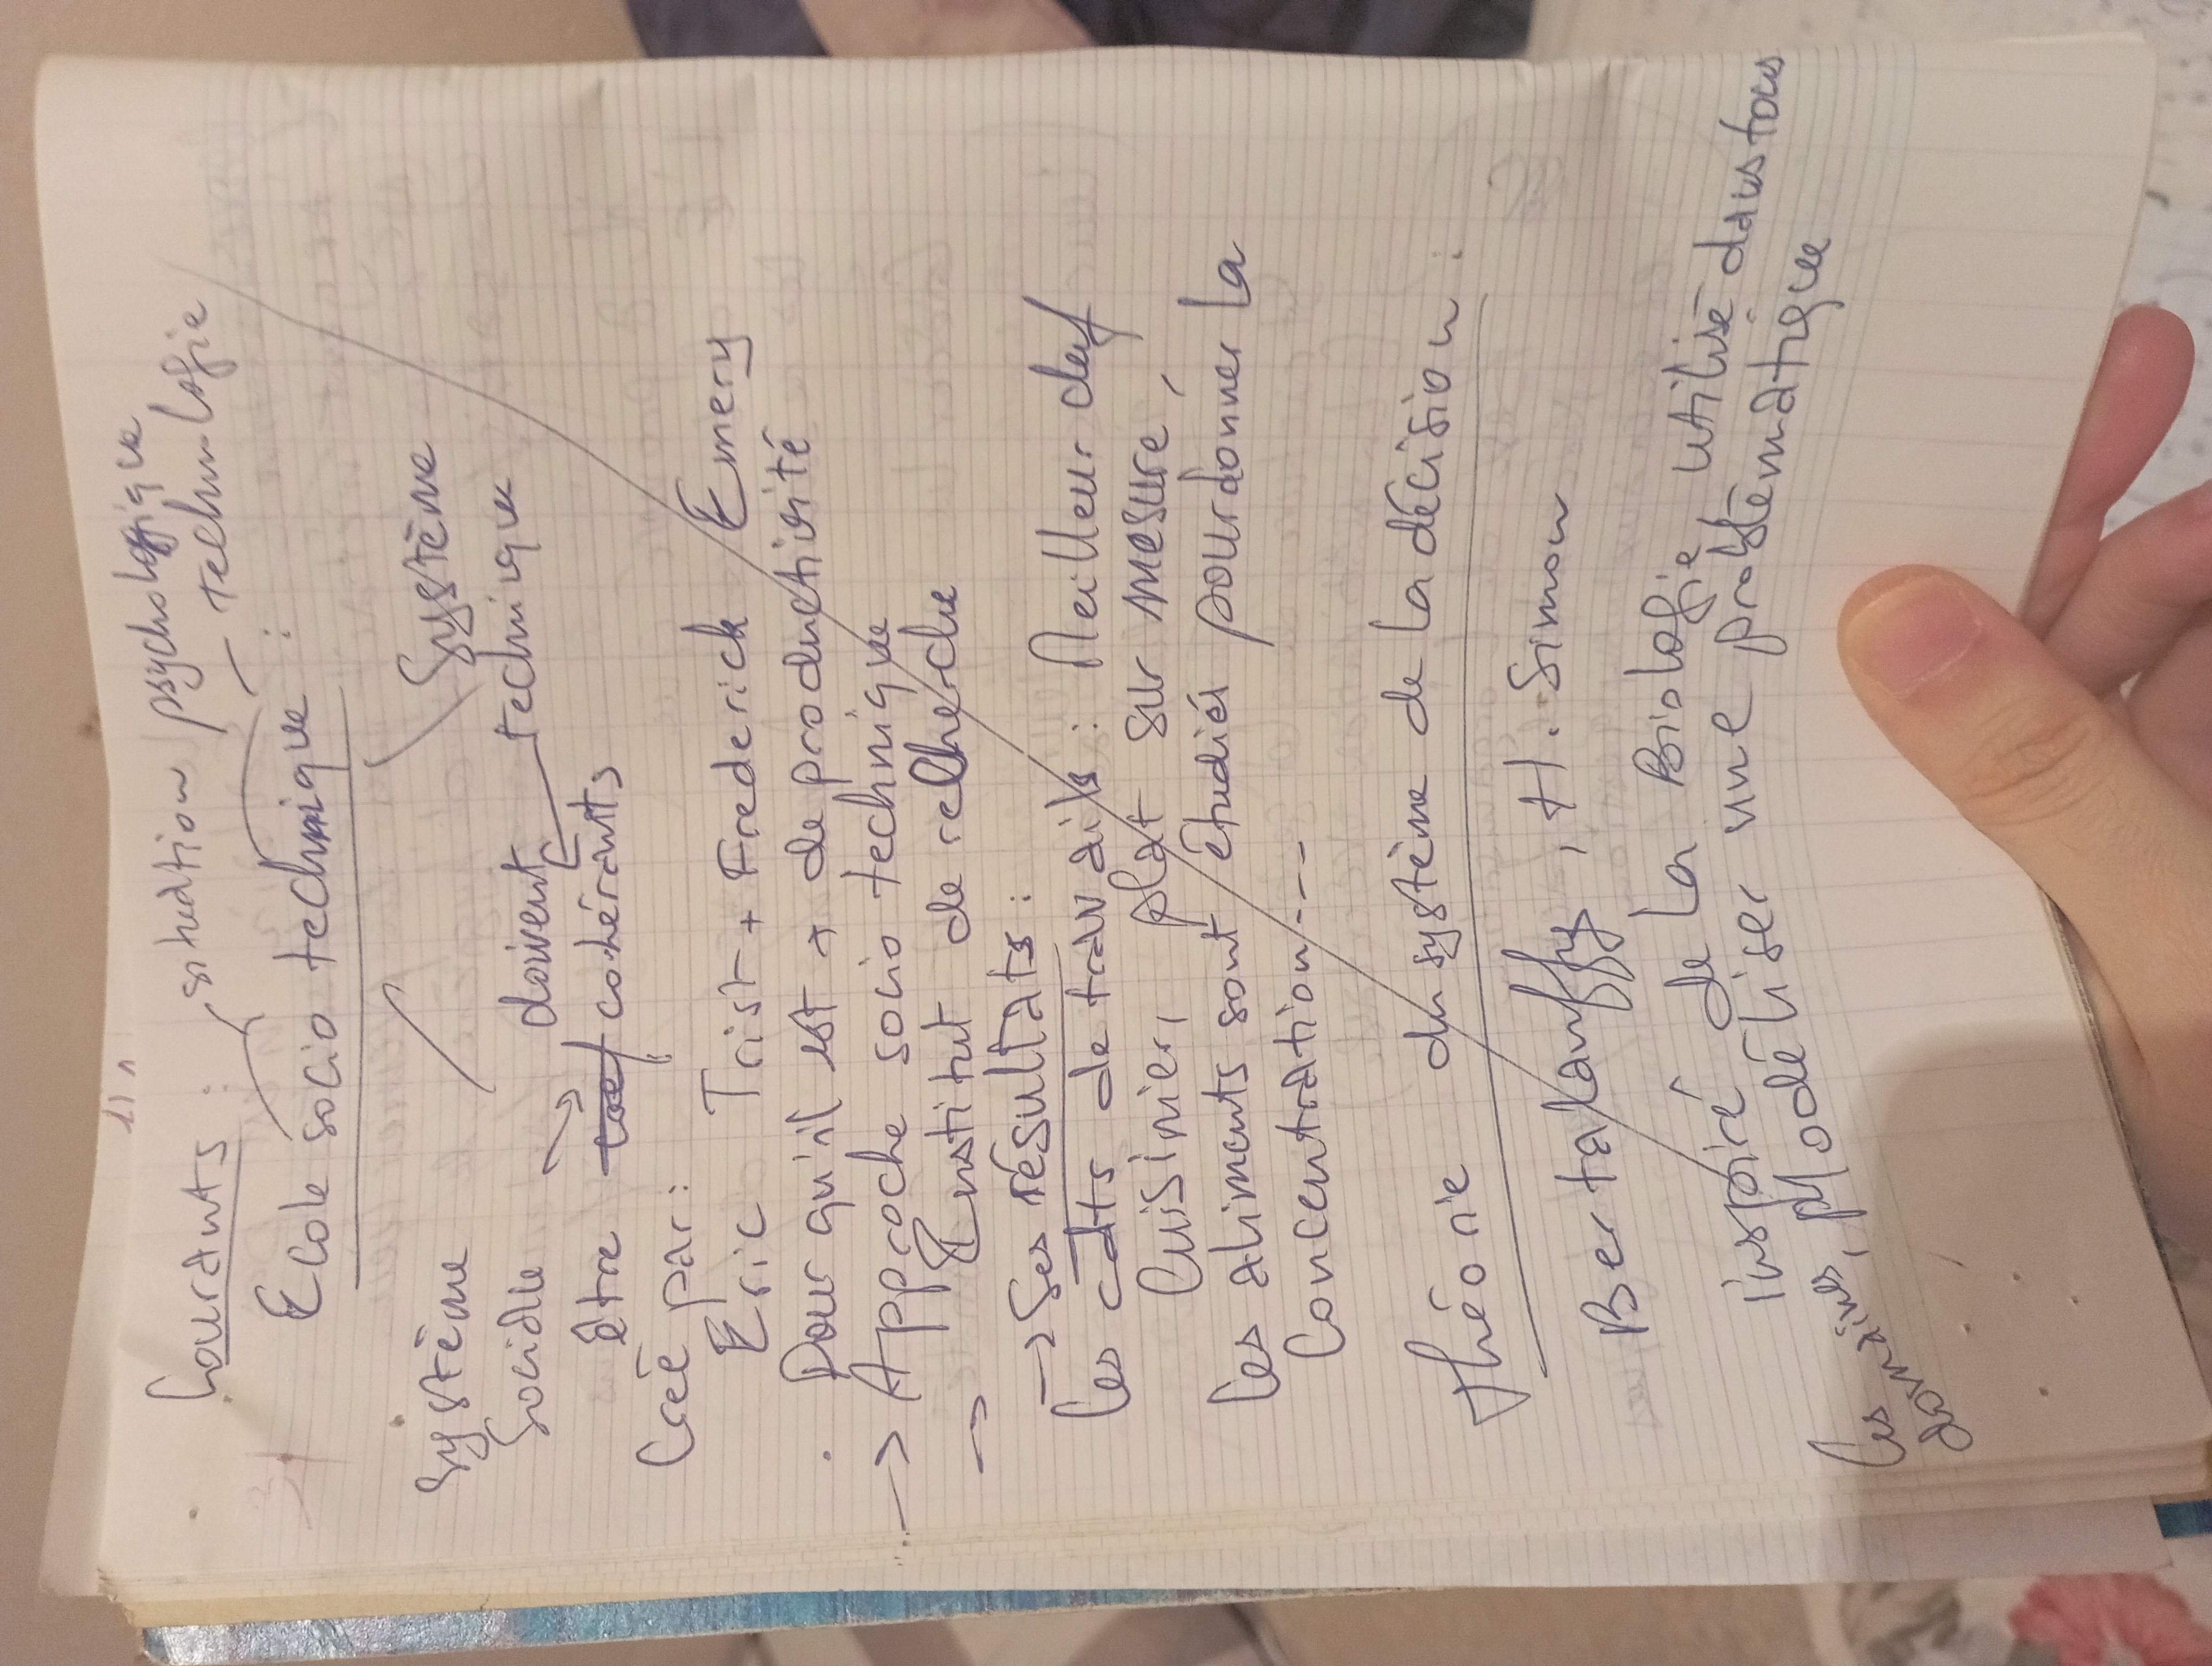 Courants : situation psychologique
technologie
Ecole socio technique :
Système Système
Sociale doivent technique
être coef cohérants
Créé par :
Eric Trist + Frederick Emery
Pour qu'il est + de productivité
→ Approche socio technique
→ Institut de recherche
→ Ses résultats :
les cdts de travails : Meilleur chef
Cuisinier, plat sur mesure,
les aliments sont étudiés pour donner la
Concentration ---
Théorie du système de la décision :
Bertalanffy, H. Simon
inspiré de la Biologie, utilisé dans tous
les domaines, Modéliser une problématique